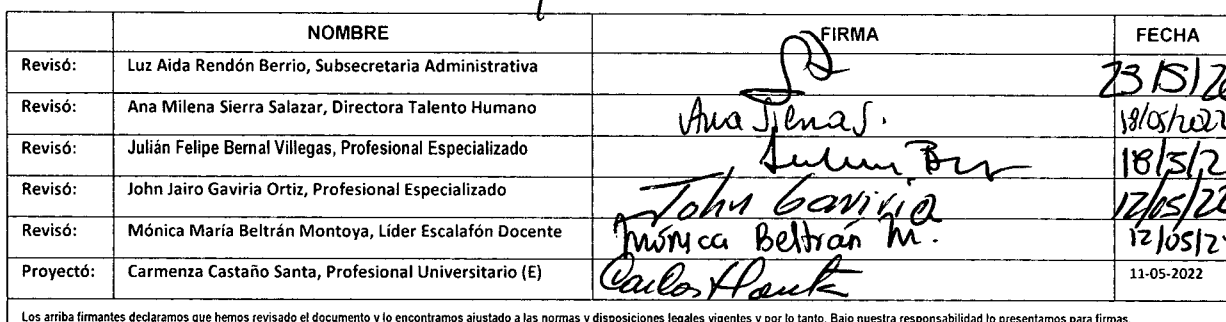 NOMBRE FIRMA FECHA
Revisó: Luz Aida Rendón Berrio, Subsecretaria Administrativa 23/5/20
Revisó: Ana Milena Sierra Salazar, Directora Talento Humano Ana Sierra S. 18/05/2022
Revisó: Julián Felipe Bernal Villegas, Profesional Especializado 18/5/2
Revisó: John Jairo Gaviria Ortiz, Profesional Especializado John Gaviria 12/05/22
Revisó: Mónica María Beltrán Montoya, Líder Escalafón Docente Mónica Beltrán M. 12/05/2
Proyectó: Carmenza Castaño Santa, Profesional Universitario (E) 11-05-2022
Los arriba firmantes declaramos que hemos revisado el documento y lo encontramos ajustado a las normas y disposiciones legales vigentes y por lo tanto, Bajo nuestra responsabilidad lo presentamos para firmas.